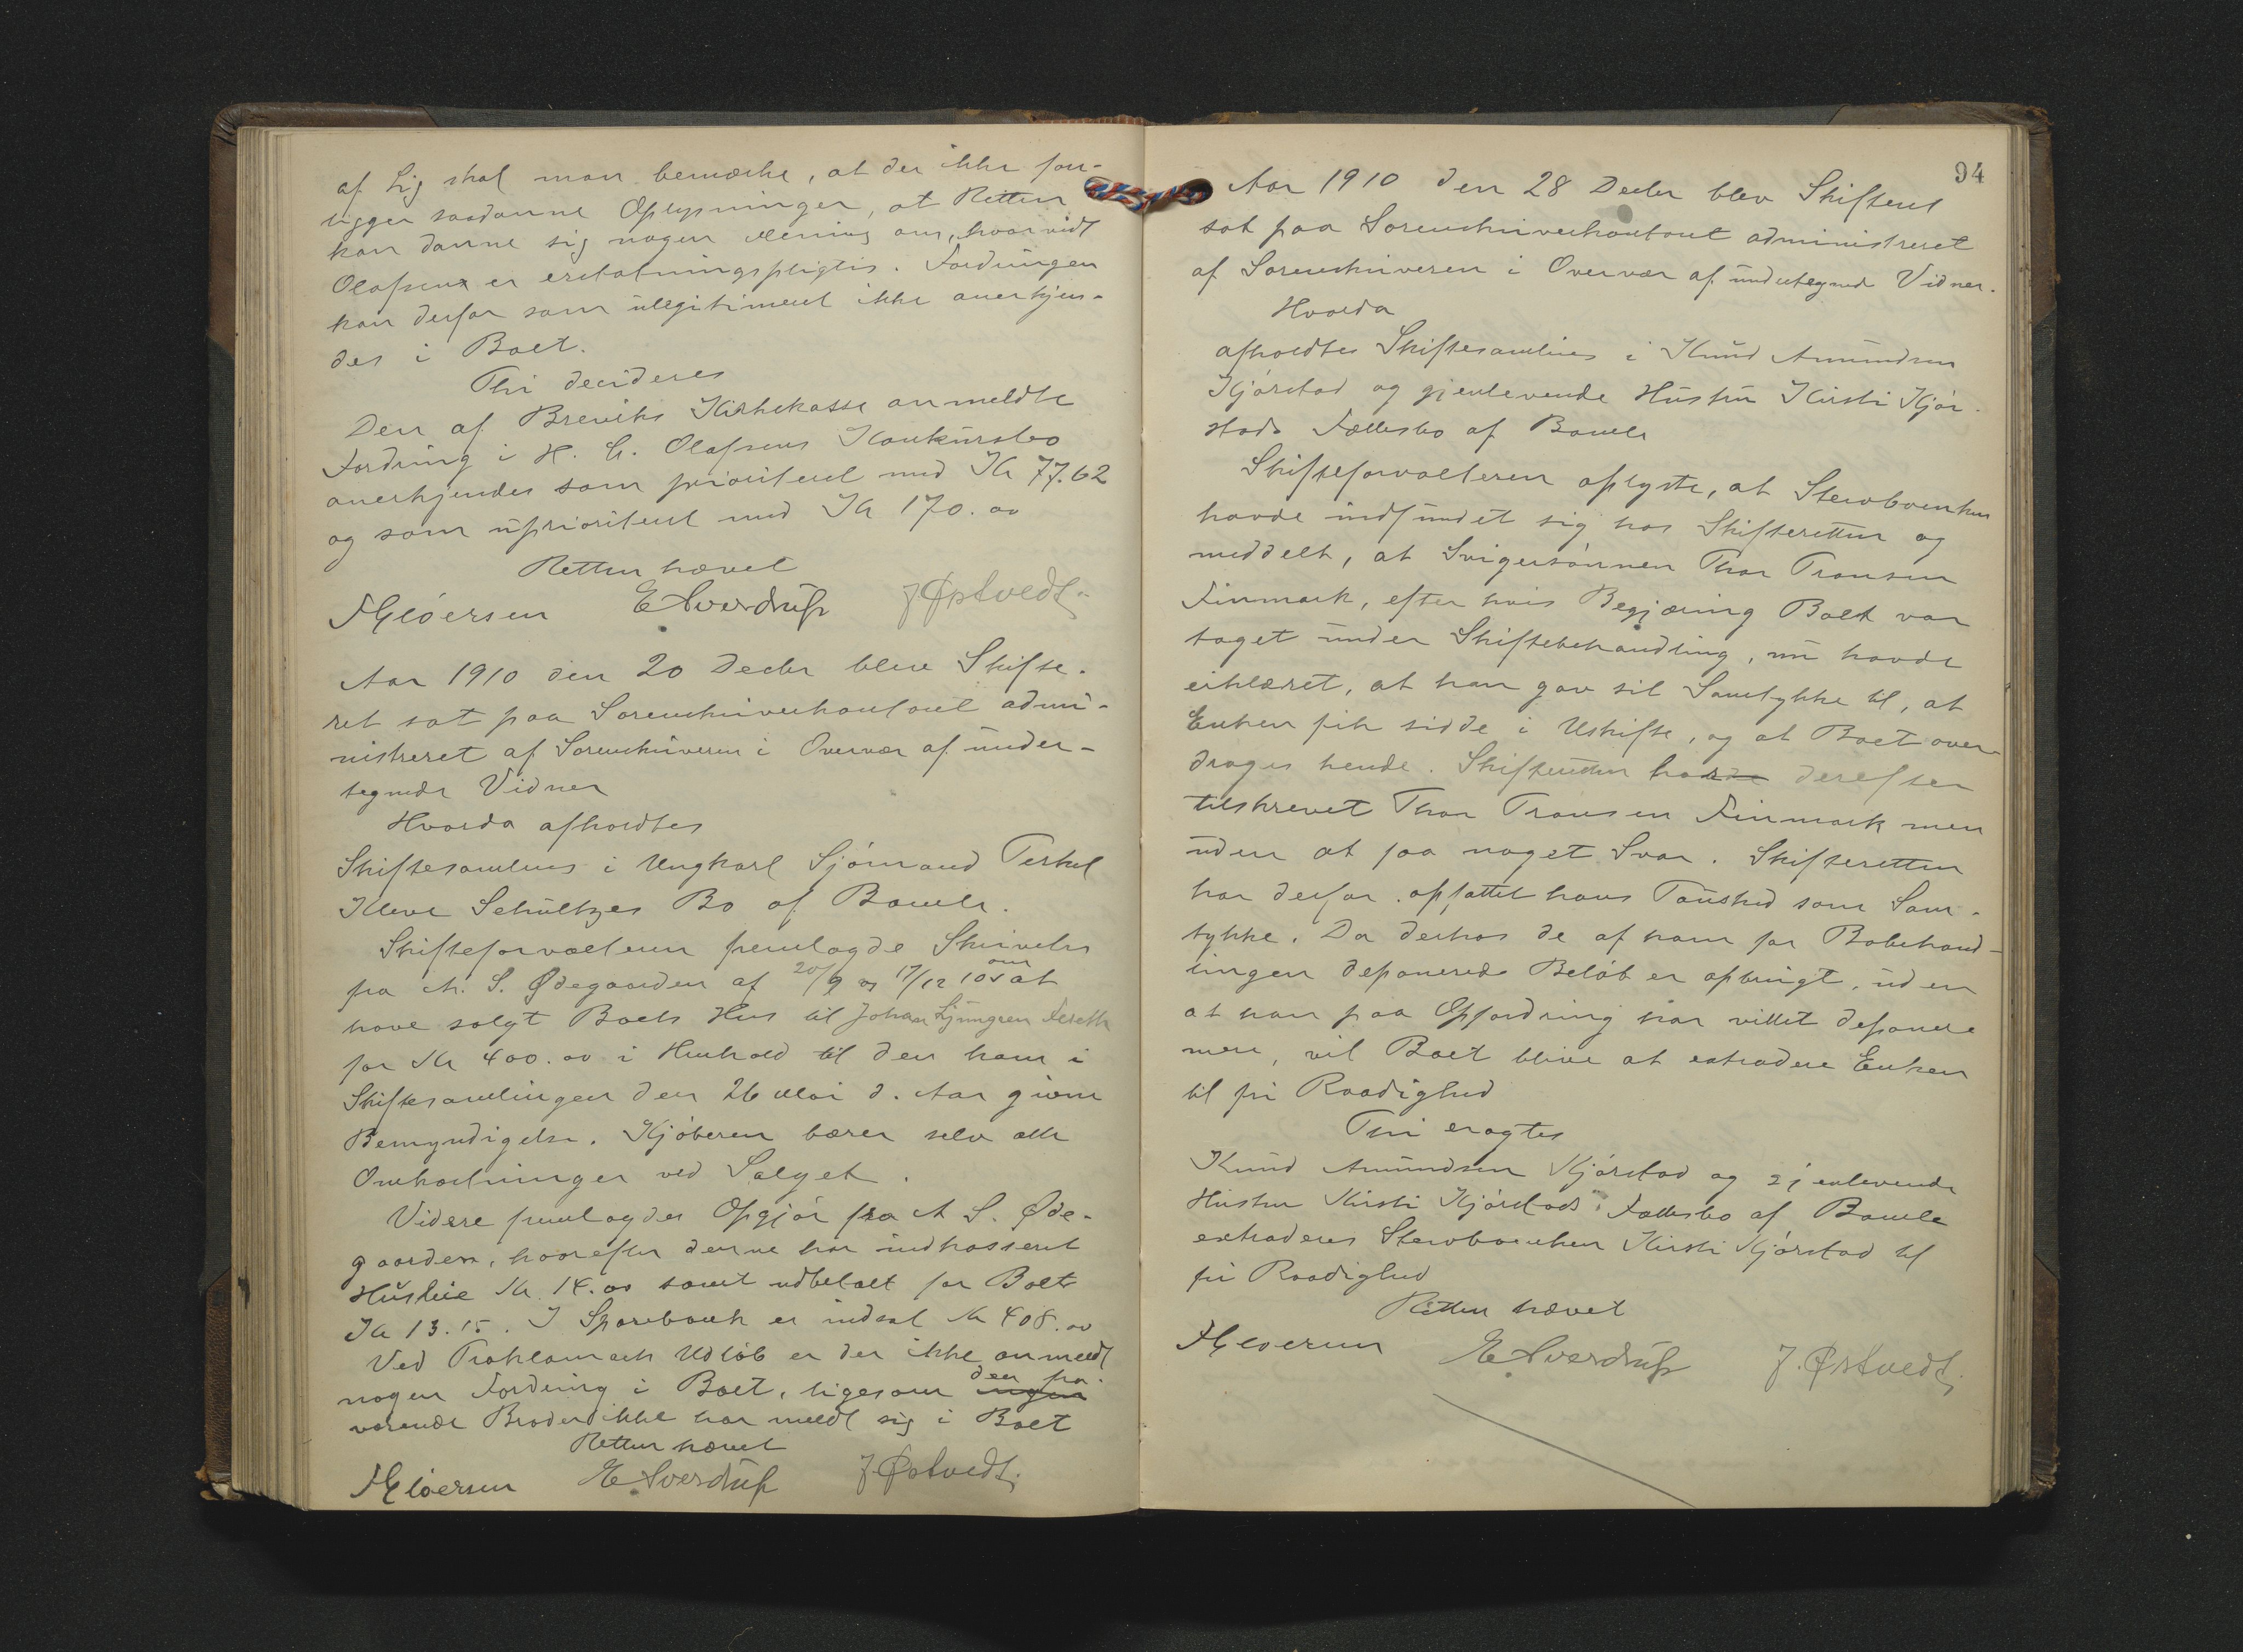 af Lig skal man bemærke, at der ikke fore-
ligger saadanne Oplysninger, at Retten
kan danne sig nogen Mening om, hvorvidt
Olafsen er erstatningspligtig. Fordringen
kan derfor som ulegitimeret ikke anerkjen-
des i Boet.
Thi decideres
Den af Breviks Kirkekasse anmeldte
Fordring i H. G. Olafsens Konkursbo
anerkjendes som prioriteret med Kr 77.62
og som uprioriteret med Kr 170.00
Retten hævet
FGløersen E Sverdrup J Østvedt
Aar 1910 den 20 Decbr blev Skifte-
ret sat paa Sorenskriverkontoret admi-
nistreret af Sorenskriveren i Overvær af under-
tegnede Vidner
Hvorda afholdtes
Skiftesamling i Ungkarl Sjømand Terkel
Kleve Schultzes Bo af Bamle.
Skifteforvalteren fremlagde Skrivelse
fra A. S. Ødegaarden af 20/9 og 17/12 10 om at
have solgt Boets Hus til Johan Ljungren
for Kr 400.00 i Henhold til den ham i
Skiftesamlingen den 26 Mai d. Aar givne
Bemyndigelse. Kjøberen bærer selv alle
Omkostninger ved Salget.
Videre fremlagdes Opgjør fra A S. Øde-
gaarden, hvorefter denne har indkasseret
Husleie Kr. 14.00 samt udbetalt for Boet
Kr 13.15. I Sparebank er indsat Kr 408.00
Ved Proklamaets Udløb er der ikke anmeldt
nogen Fordring i Boet, ligesom ingen den fra-
værende Broder ikke har meldt sig i Boet
Retten hævet
FGløersen E Sverdrup J. Østvedt.
94
Aar 1910 den 28 Decbr blev Skifteret
sat paa Sorenskriverkontoret administreret
af Sorenskriveren i Overvær af undertegnede Vidner.
Hvorda
afholdtes Skiftesamling i Knud Amundsen
Kjørstad og gjenlevende Hustru Kirsti Kjør-
stads Fællesbo af Bamle
Skifteforvalteren oplyste, at Stervboenken
havde indfundet sig hos Skifteretten og
meddelt, at Svigersønnen Thor Transen
Finmark, efter hvis Begjæring Boet var
taget under Skiftebehandling, nu havde
erklæret, at han gav sit Samtykke til, at
Enken fik sidde i Uskifte, og at Boet over-
drages hende. Skifteretten havde derefter
tilskrevet Thor Transen Finmark men
uden at faa noget Svar. Skifteretten
har derfor opfattet hans Taushed som Sam-
tykke. Da derhos de af ham for Bobehand-
lingen deponerede Beløb er opbrugt, uden
at han paa Opfordring har villet deponere
mere, vil Boet blive at extradere Enken
til fri Raadighed
Thi eragtes
Knud Amundsen Kjørstad og gjenlevende
Hustru Kirsti Kjørstads Fællesbo af Bamle
extraderes Stervboenken Kirsti Kjørstad til
fri Raadighed
Retten hævet
FGløersen E Sverdrup J. Østvedt.